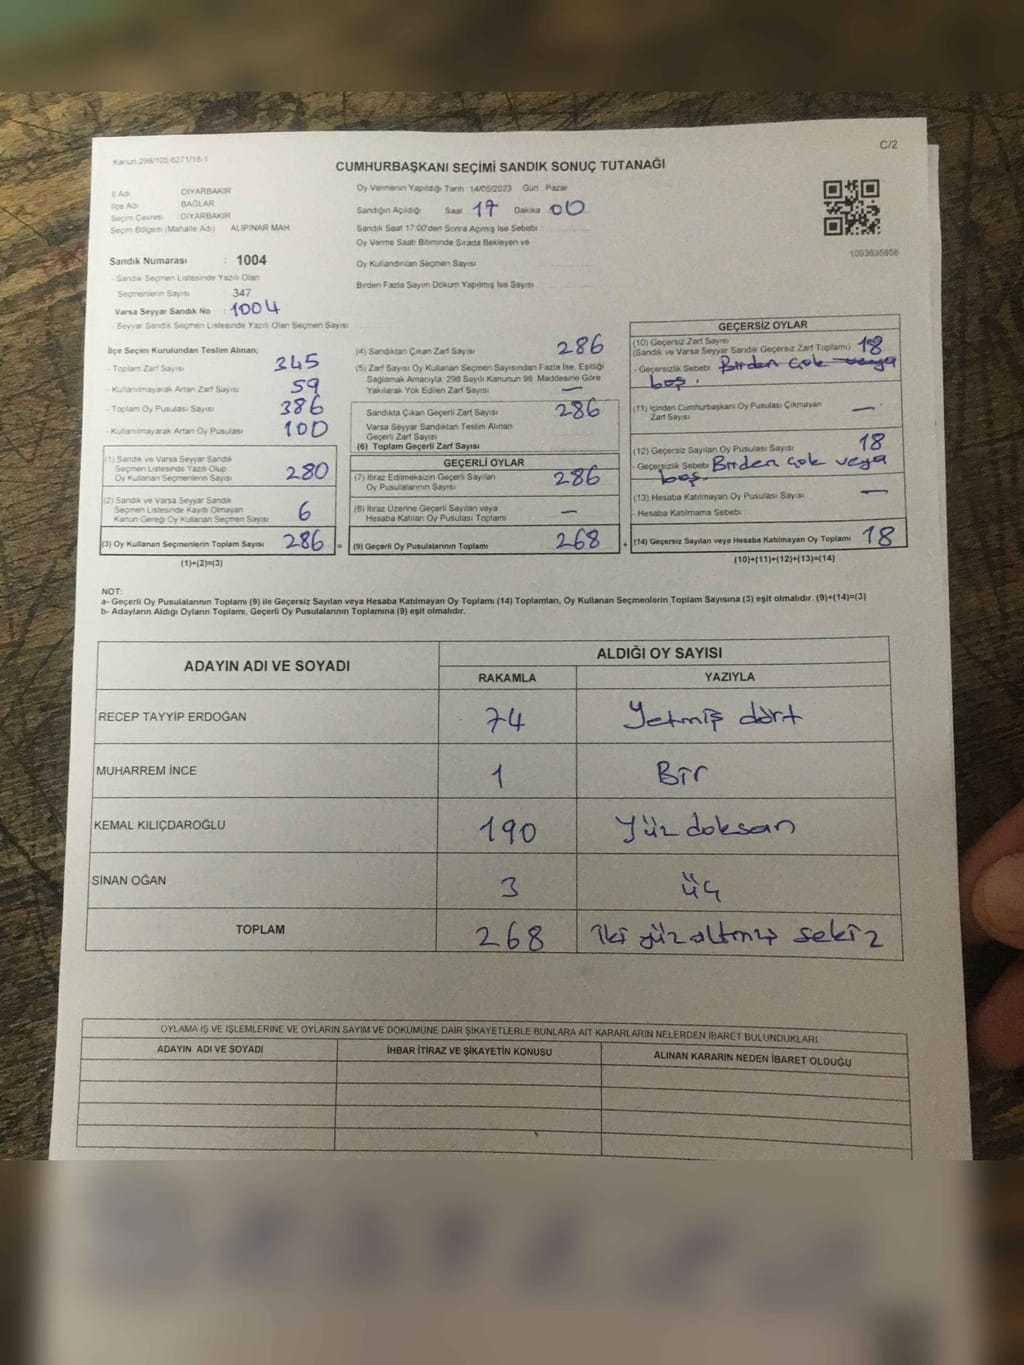 Kanun 298/105 6271/18-1
C/2
CUMHURBAŞKANI SEÇİMİ SANDIK SONUÇ TUTANAĞI
İl Adı DİYARBAKIR
İlçe Adı BAĞLAR
Seçim Çevresi : DİYARBAKIR
Seçim Bölgesi (Mahalle Adı) ALIPINAR MAH
Sandık Numarası : 1004
- Sandık Seçmen Listesinde Yazılı Olan
Seçmenlerin Sayısı 347
Varsa Seyyar Sandık No : 1004
- Seyyar Sandık Seçmen Listesinde Yazılı Olan Seçmen Sayısı
Oy Vermenin Yapıldığı Tarih 14/05/2023 Gün Pazar
Sandığın Açıldığı Saat 17 Dakika 00
Sandık Saat 17:00'den Sonra Açmış İse Sebebi :
Oy Verme Saati Bitiminde Sırada Bekleyen ve
Oy Kullandırılan Seçmen Sayısı
Birden Fazla Sayım Döküm Yapılmış İse Sayısı
1093695656
İlçe Seçim Kurulundan Teslim Alınan;
- Toplam Zarf Sayısı 345
- Kullanılmayarak Artan Zarf Sayısı 59
- Toplam Oy Pusulası Sayısı 386
- Kullanılmayarak Artan Oy Pusulası 100
(1) Sandık ve Varsa Seyyar Sandık
Seçmen Listesinde Yazılı Olup
Oy Kullanan Seçmenlerin Sayısı 280
(2) Sandık ve Varsa Seyyar Sandık
Seçmen Listesinde Kayıtlı Olmayan
Kanun Gereği Oy Kullanan Seçmen Sayısı 6
(3) Oy Kullanan Seçmenlerin Toplam Sayısı 286 =
(1)+(2)=(3)
(4) Sandıktan Çıkan Zarf Sayısı 286
(5) Zarf Sayısı Oy Kullanan Seçmen Sayısından Fazla İse, Eşitliği
Sağlamak Amacıyla; 298 Sayılı Kanunun 98. Maddesine Göre
Yakılarak Yok Edilen Zarf Sayısı —
Sandıkta Çıkan Geçerli Zarf Sayısı 286
Varsa Seyyar Sandıktan Teslim Alınan
Geçerli Zarf Sayısı
(6) Toplam Geçerli Zarf Sayısı
GEÇERLİ OYLAR
(7) İtiraz Edilmeksizin Geçerli Sayılan
Oy Pusulalarının Sayısı 286
(8) İtiraz Üzerine Geçerli Sayılan veya
Hesaba Katılan Oy Pusulası Toplamı —
(9) Geçerli Oy Pusulalarının Toplamı 268 +
GEÇERSİZ OYLAR
(10) Geçersiz Zarf Sayısı
(Sandık ve Varsa Seyyar Sandık Geçersiz Zarf Toplamı) 18
- Geçersizlik Sebebi Birden çok veya
boş.
(11) İçinden Cumhurbaşkanı Oy Pusulası Çıkmayan
Zarf Sayısı —
(12) Geçersiz Sayılan Oy Pusulası Sayısı 18
- Geçersizlik Sebebi Birden çok veya
boş.
(13) Hesaba Katılmayan Oy Pusulası Sayısı —
- Hesaba Katılmama Sebebi
(14) Geçersiz Sayılan veya Hesaba Katılmayan Oy Toplamı 18
(10)+(11)+(12)+(13)=(14)
NOT:
a- Geçerli Oy Pusulalarının Toplamı (9) ile Geçersiz Sayılan veya Hesaba Katılmayan Oy Toplamı (14) Toplamları, Oy Kullanan Seçmenlerin Toplam Sayısına (3) eşit olmalıdır. (9)+(14)=(3)
b- Adayların Aldığı Oyların Toplamı, Geçerli Oy Pusulalarının Toplamına (9) eşit olmalıdır.
ADAYIN ADI VE SOYADI
ALDIĞI OY SAYISI
RAKAMLA YAZIYLA
RECEP TAYYİP ERDOĞAN 74 Yetmiş dört
MUHARREM İNCE 1 Bir
KEMAL KILIÇDAROĞLU 190 Yüz doksan
SİNAN OĞAN 3 üç
TOPLAM 268 iki yüz altmış sekiz
OYLAMA İŞ VE İŞLEMLERİNE VE OYLARIN SAYIM VE DÖKÜMÜNE DAİR ŞİKAYETLERLE BUNLARA AİT KARARLARIN NELERDEN İBARET BULUNDUKLARI
ADAYIN ADI VE SOYADI İHBAR İTİRAZ VE ŞİKAYETİN KONUSU ALINAN KARARIN NEDEN İBARET OLDUĞU